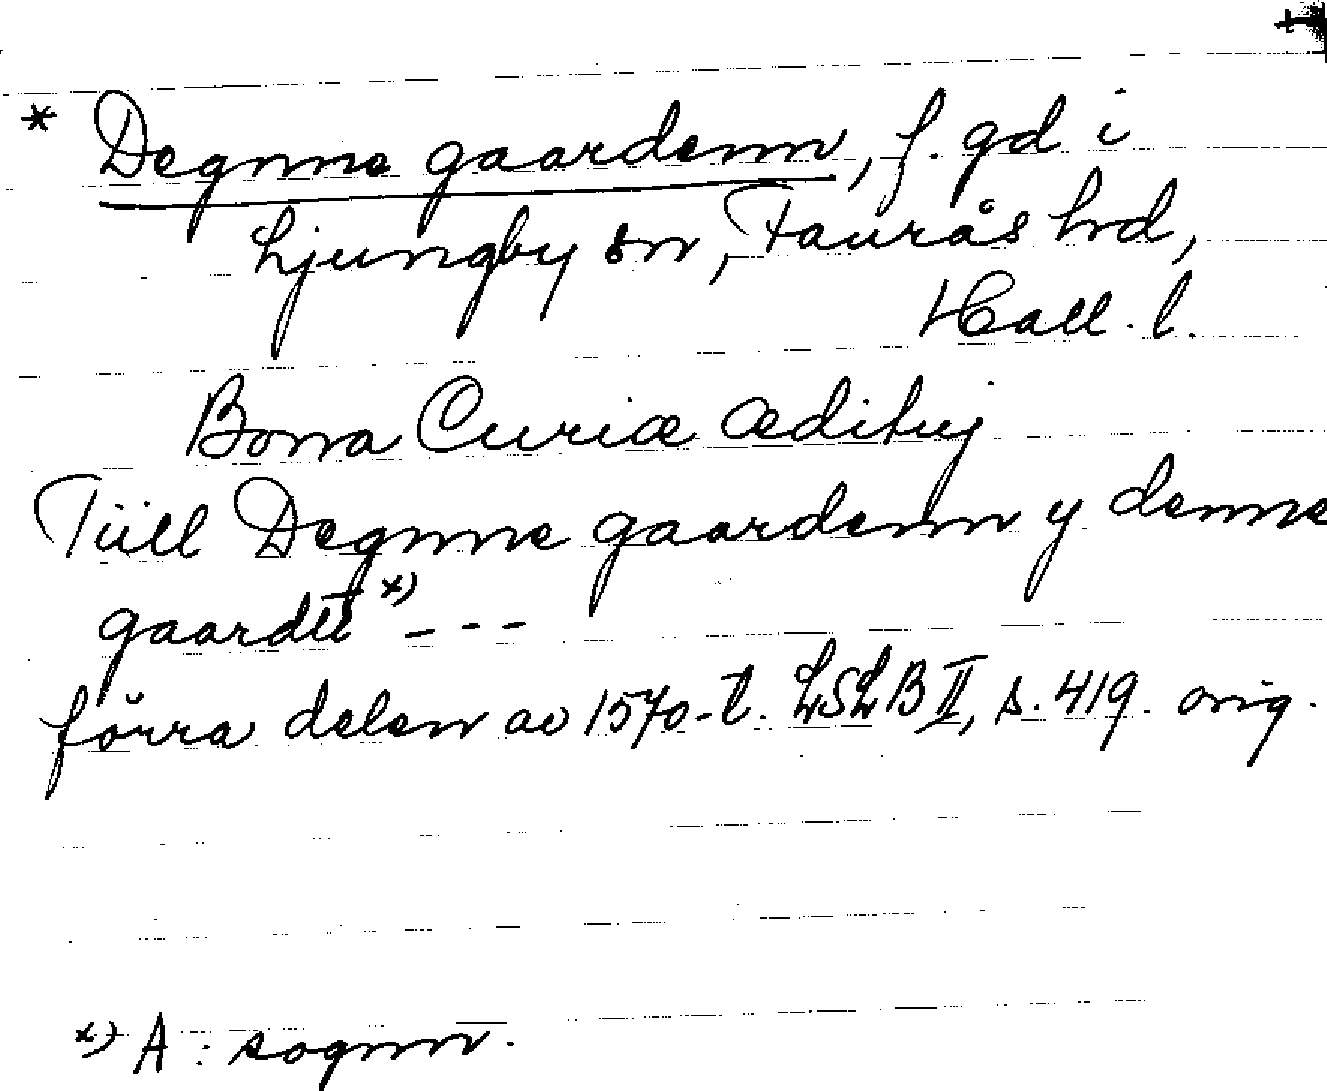 * Degnne gaardenn, f. gd i
Ljungby sn, Faurås hd,
Hall. l.
Bona Curiæ ædituj
Tiill Degnne gaardenn y denne
gaardtt *) - - -
förra delen av 1570-t. LSLB II, s. 419. orig.
*) A: sognn.